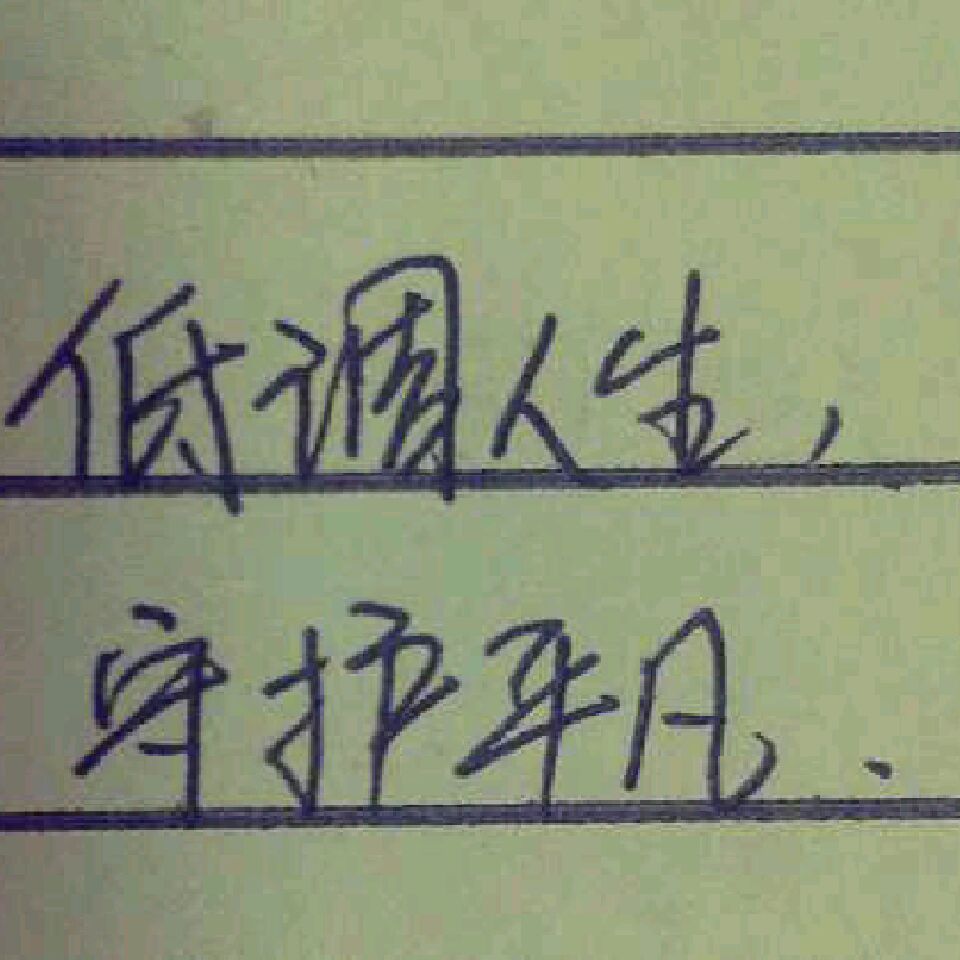 低调人生,
守护平凡.